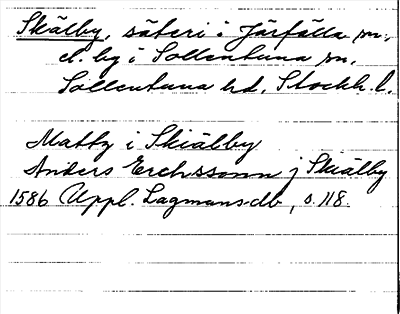 Skälby, säteri i Järfälla sn.,
el. by i Sollentuna sn.
Sollentuna hd. Stockh. l.
Matts i Skiälby
Anders Erchssonn j Skiälby
1586 Uppl. Lagmansdb, s. 118.